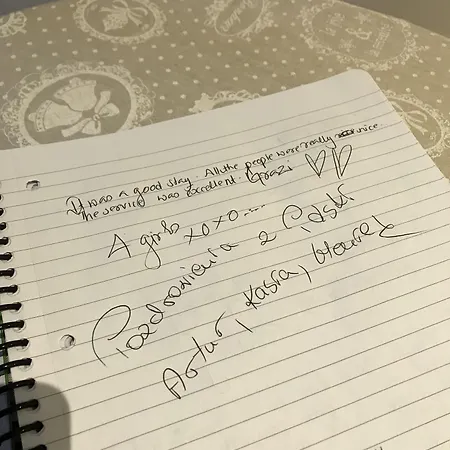 It was a good stay. All the people were really nice.
The service was excellent. Grazi ♡♡
4 girls xoxo....
Pozdrowienia z Polski
Artur, Kasia,